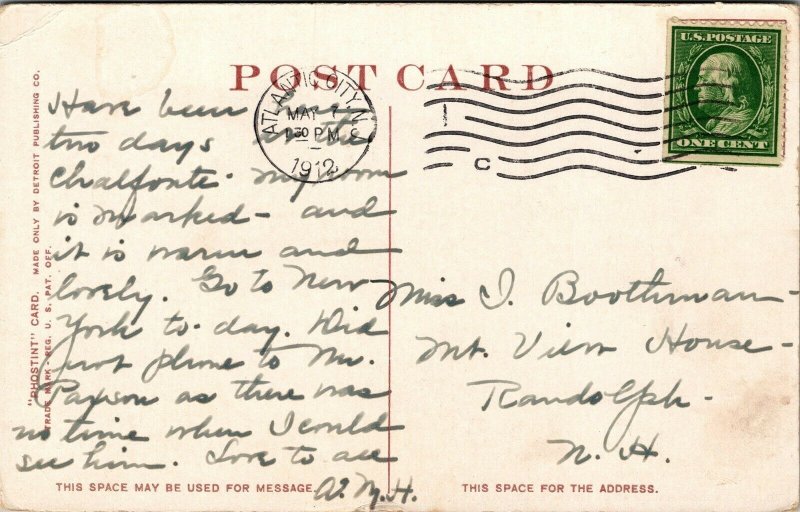 POST CARD
U.S. POSTAGE
ONE CENT
ATLANTIC CITY, N.J.
MAY 7
1 30 P.M.
1912
C
"PHOSTINT" CARD. MADE ONLY BY DETROIT PUBLISHING CO.
TRADE MARK - REG. U. S. PAT. OFF.
Have been here
two days in the
Chalfonte. My room
is marked - and
it is warm and
lovely. Go to New
York to-day. Did
not phone to Mr.
Paxson as there was
no time when I could
see him. Love to all
A. M. H.
Miss I. Boothman -
Mt. View House -
Randolph -
N. H.
THIS SPACE MAY BE USED FOR MESSAGE.
THIS SPACE FOR THE ADDRESS.